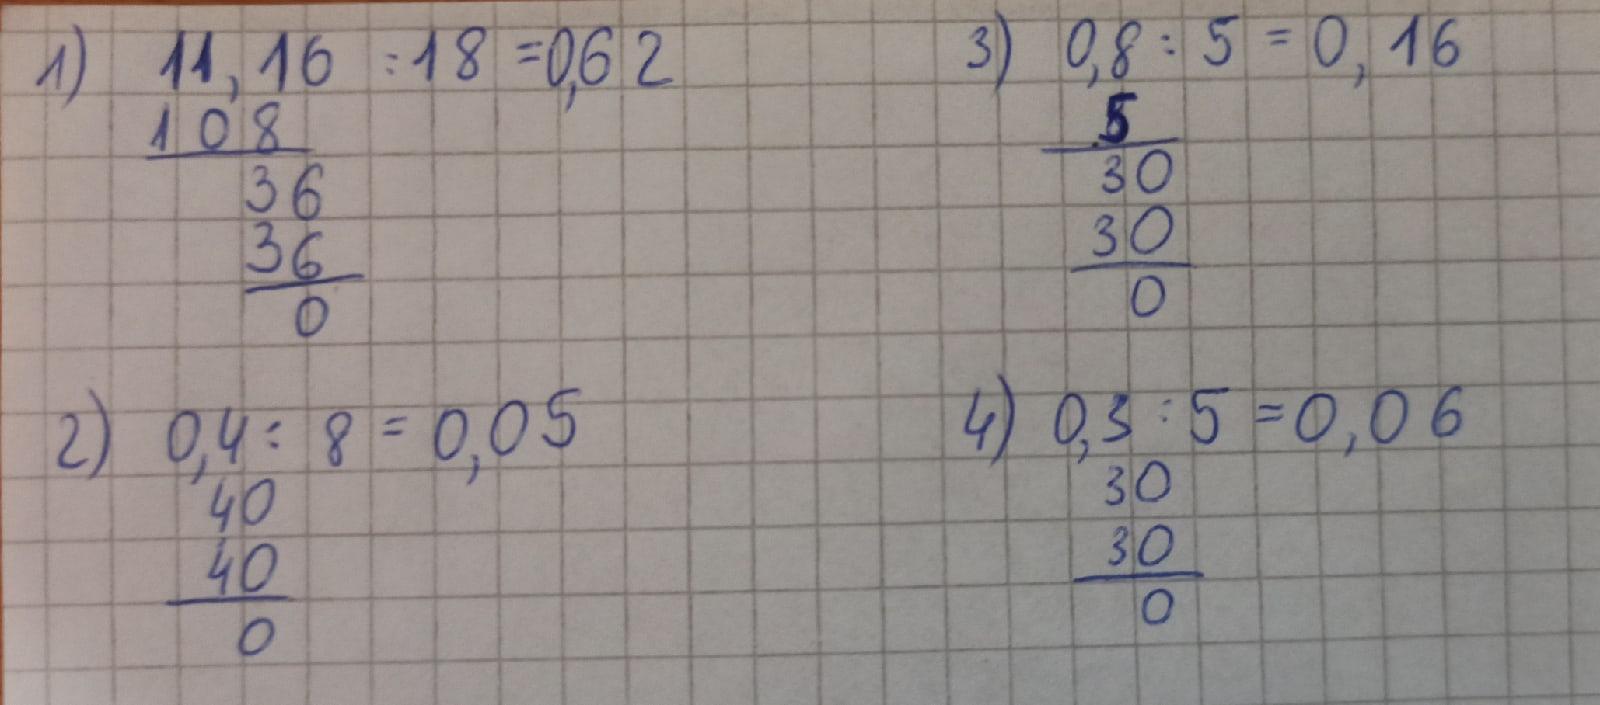 1) 11,16 :18 =0,62
108
36
36
0
2) 0,4 : 8 = 0,05
40
40
0
3) 0,8 : 5 = 0,16
5
30
30
0
4) 0,3 : 5 = 0,06
30
30
0